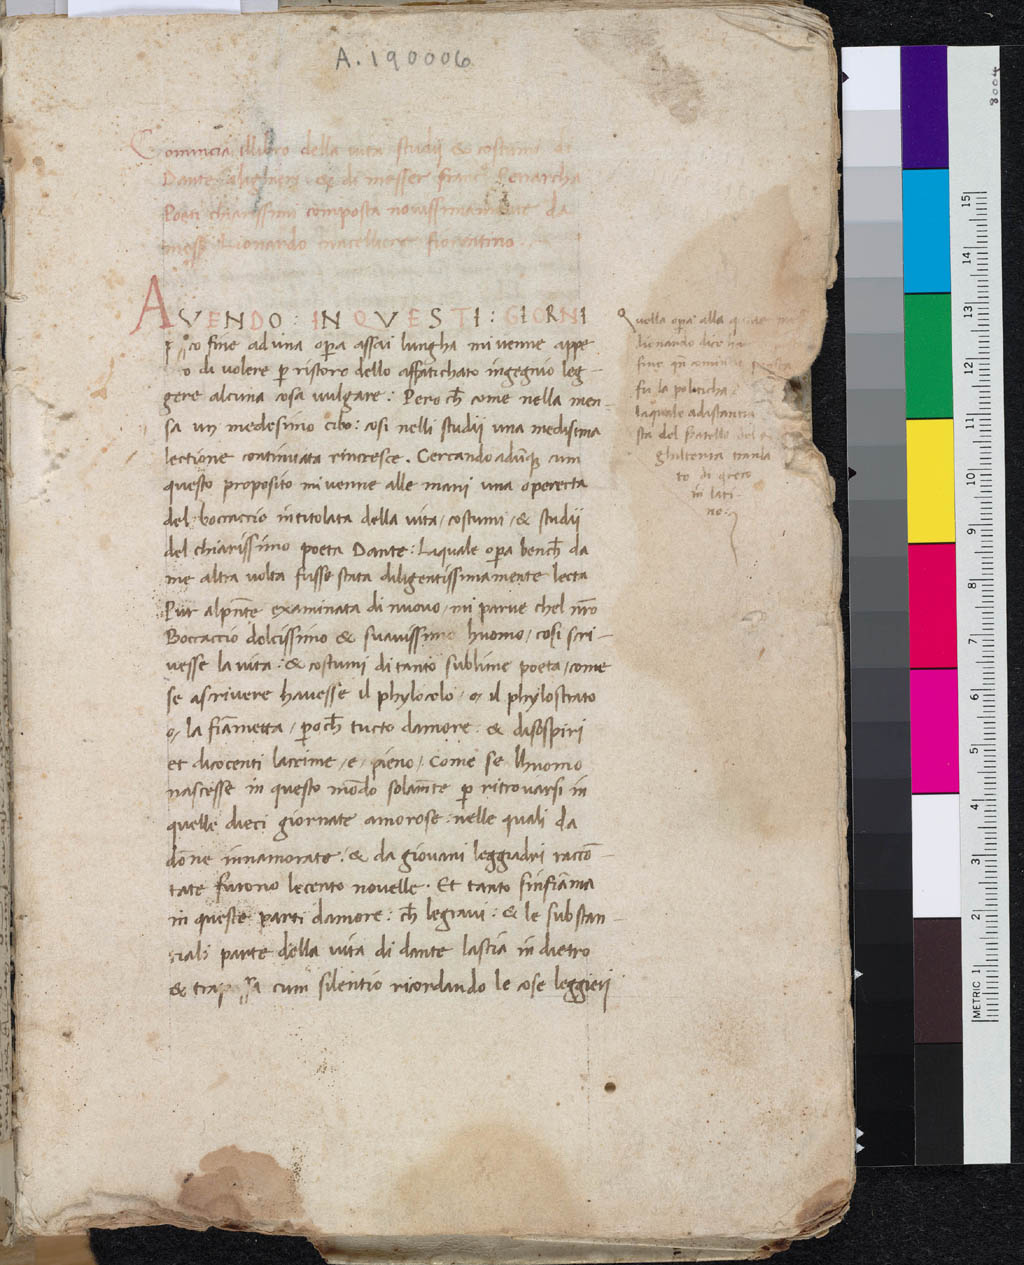 A.190006
Comincia illibro della vita studij & costumi di
Dante Alighieri & di messer Petrarcha
Poeti chiarissimi composta novissimamente da
Lionardo fiorentino.
AVENDO: IN QVESTI: GIORNI
fine ad una opa assai lungha mi venne appe
di volere p ristoro dello affatichato ingegnio leg-
gere alcuna cosa vulgare: Pero ch̄ come nella men-
sa un medesimo cibo: cosi nelli studij una medisima
lectione continuata rincresce. Cercando adūq̄ cum
questo proposito mi venne alle mani una operecta
del boccaccio intitolata della vita/costumi/& studij
del chiarissimo poeta Dante: Laquale opa bench̄ da
me altra volta fusse stata diligentissimamente lecta
Pur alpn̄te examinata di nuovo/mi parve chel nr̄o
Boccaccio dolcissimo & suavissimo huomo/cosi scri-
vesse la vita: & costumi di tanto sublime poeta/come
se ascrivere havesse il phylocolo/o/il phylostrato
o/la fiāmetta/poch̄ tucto damore: & disospiri
et dicocenti lacrime/e/pieno/Come se lhuomo
nascesse in questo mōdo solam̄te p ritrovarsi in
quelle dieci giornate amorose: nelle quali da
dōne innamorate: & da giovani leggiadri raccō-
tate furono lecento novelle. Et tanto sinfiāma
in queste parti damore: ch̄ legravi: & le substan-
parte della vita di dante lascia indietro
& cum silentio ricordando le cose leggieri
Quella opa alla
lionardo dice
fine
fu la politicha
laquale adistantia
sta del fratello
ghilterra transla
to di greco
in lati-
no:
8004
METRIC 1
2
3
4
5
6
7
8
9
10
11
12
13
14
15